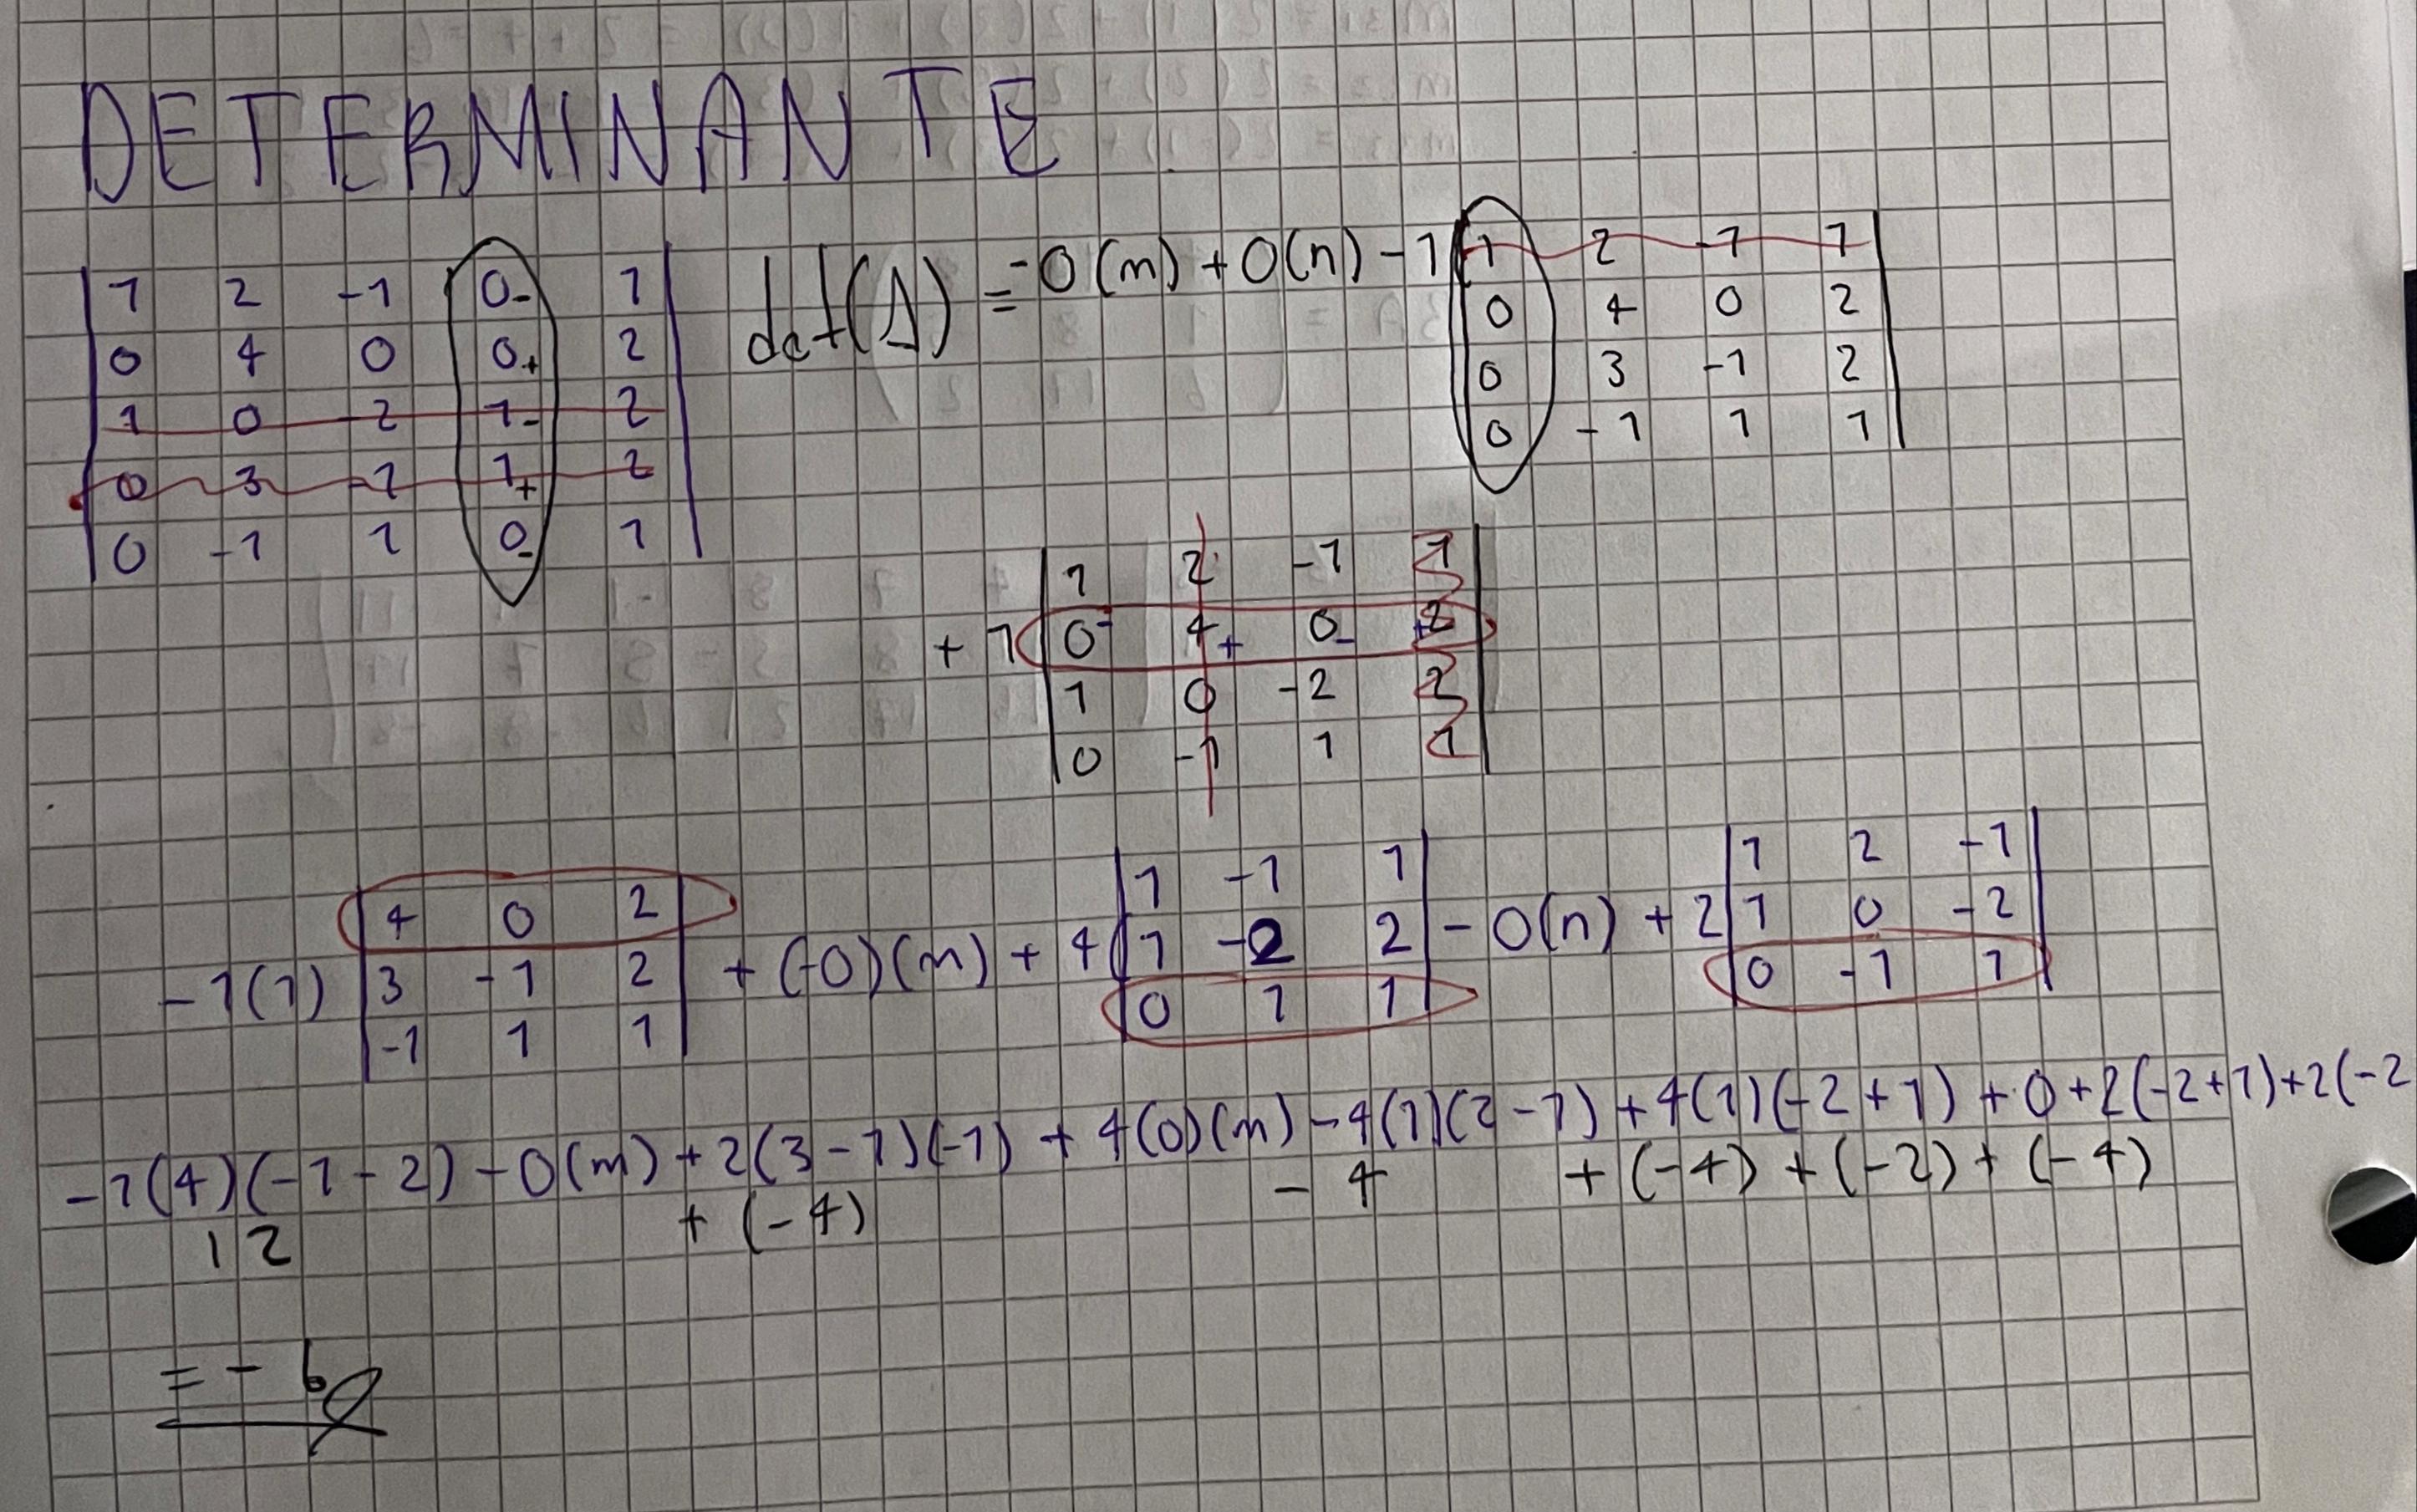 DETERMINANTE
1 2 -1 0- 1
0 4 0 0+ 2
1 0 -2 1- 2
0 3 -1 1+ 2
0 -1 1 0- 1
det(A) = -0(m) + 0(n) - 1
1 2 -1 1
0 4 0 2
0 3 -1 2
0 -1 1 1
+ 1
1 2 -1 1
0- 4+ 0- +2
1 0 -2 2
0 -1 1 1
-1(1) | 4 0 2 | + (-0)(m) + 4 | 1 -1 1 | - 0(n) + 2 | 1 2 -1 |
| 3 -1 2 | | 1 -2 2 | | 1 0 -2 |
| -1 1 1 | | 0 1 1 | | 0 -1 1 |
-1(4)(-1-2) - 0(m) + 2(3-1)(-1) + 4(0)(m) - 4(1)(2-1) + 4(1)(-2+1) + 0 + 2(-2+1) + 2(-2
12 + (-4) - 4 + (-4) + (-2) + (-4)
= -6